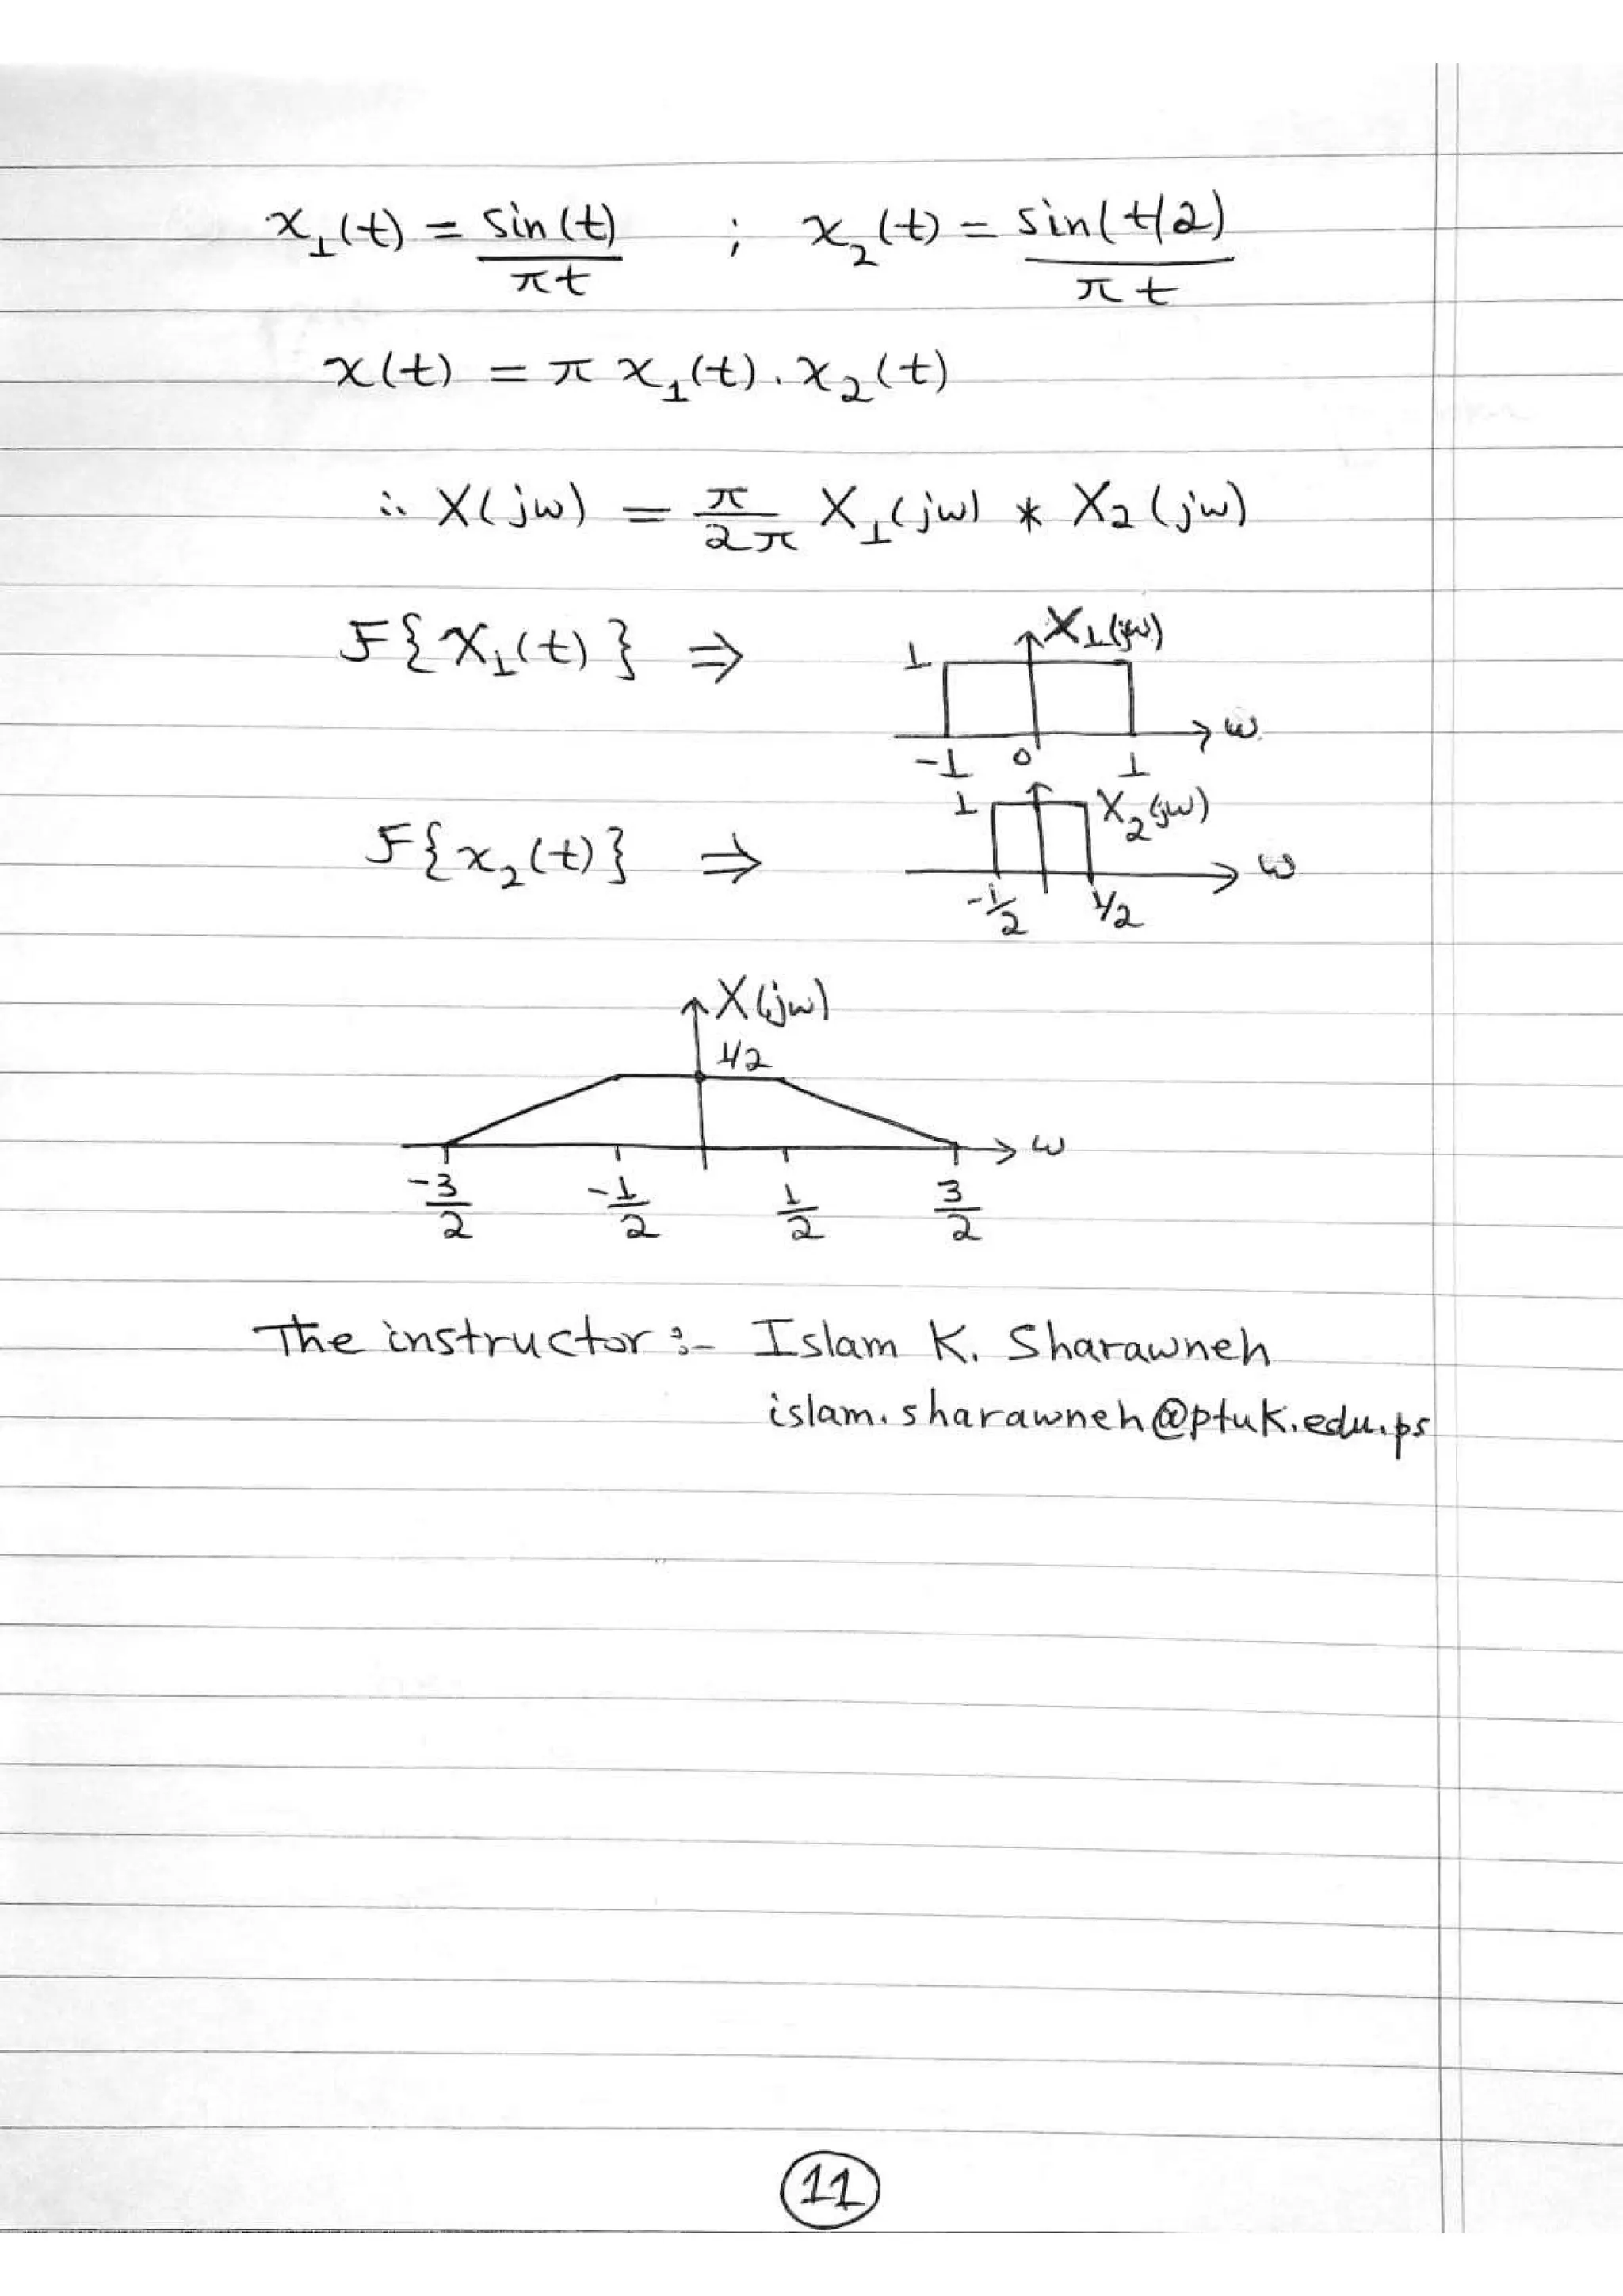 x₁(t) = sin(t)/πt ; x₂(t) = sin(t/2)/πt
x(t) = π x₁(t) . x₂(t)
∴ X(jω) = π/2π X₁(jω) * X₂(jω)
F{x₁(t)} ⇒ 1 X₁(jω) ω
-1 0 1
F{x₂(t)} ⇒ 1 X₂(jω) ω
-1/2 1/2
X(jω)
1/2
ω
-3/2 -1/2 1/2 3/2
The instructor :- Islam K. Sharawneh
islam.sharawneh@ptuk.edu.ps
11